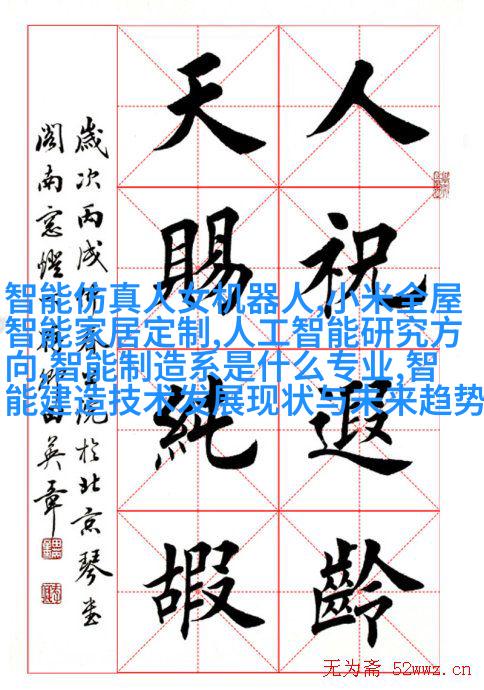 人祝遐齡
天賜純嘏
歲次丙戌仲春於北京琴
閣南窗燈田英章
智能仿真人女机器人,小米全屋
智能家居定制,人工智能研究方
向,智能制造系是什么专业,智
能建造技术发展现状与未来趋势
无为斋 52wwz.cn